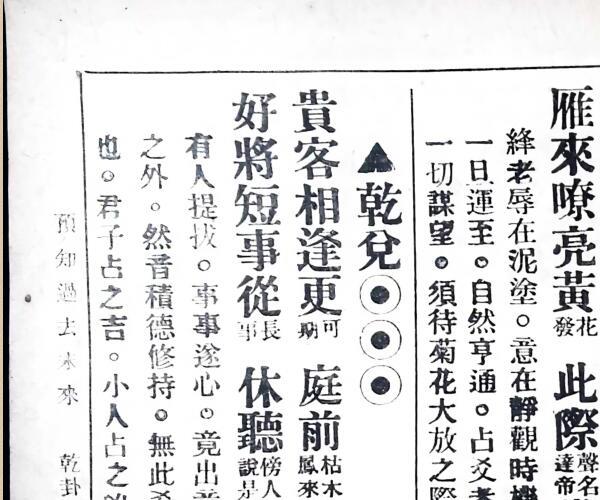 雁來嘹亮黃花發 此際聲名達帝
絳老辱在泥塗。意在靜觀時機
一旦運至。自然亨通。占爻者
一切謀望。須待菊花大放之際
▲乾兌
貴客相逢更可期 庭前枯木鳳來
好將短事從長事 休聽傍人說是
有人提拔。事事遂心。竟出意
之外。然昔積德修持。無此爻
也。君子占之吉。小人占之凶
預知過去未來 乾卦